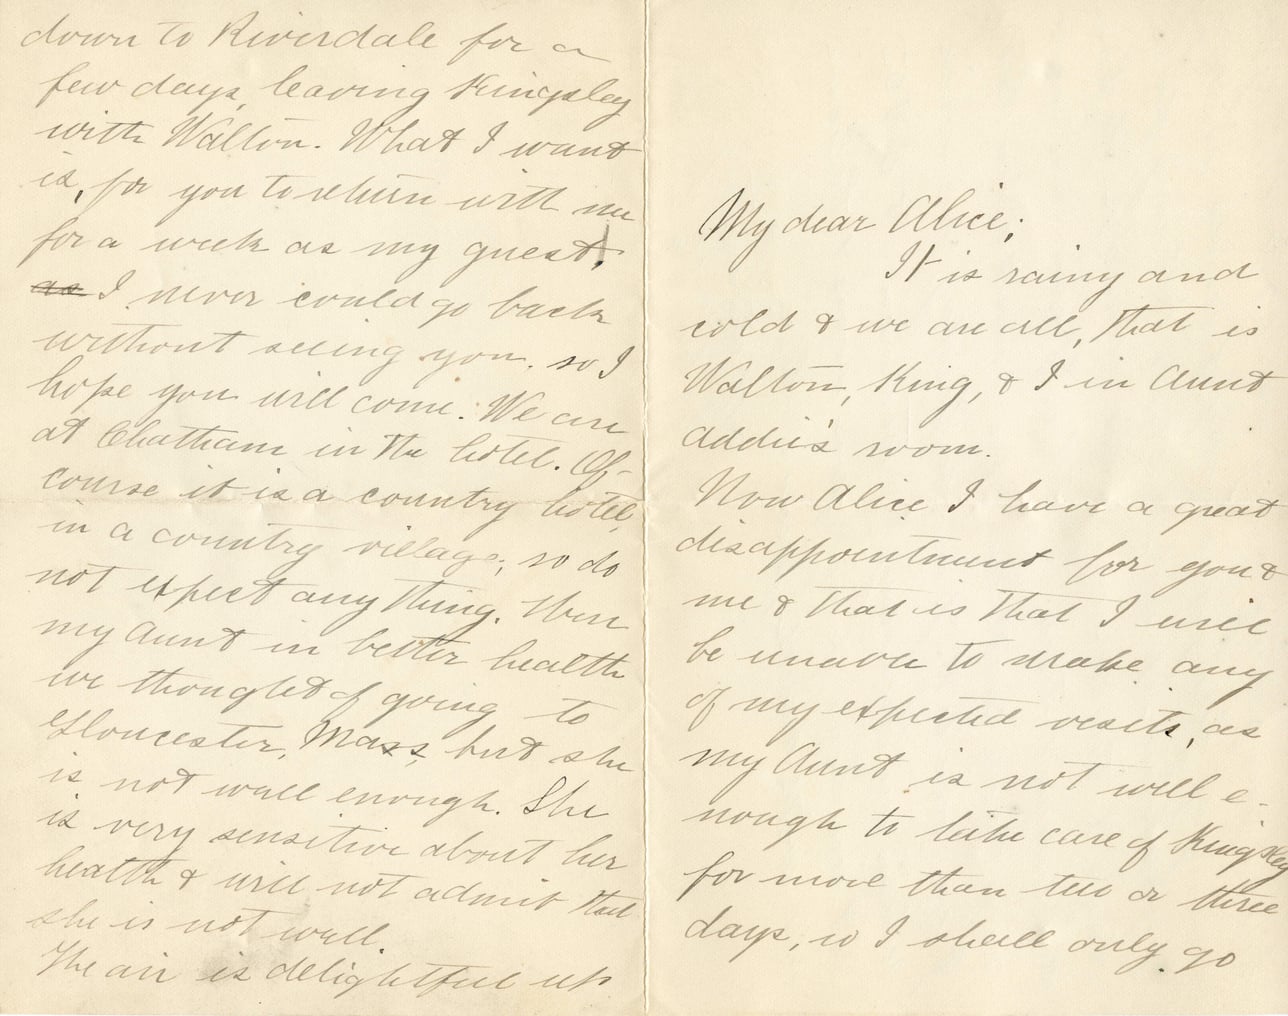 My dear Alice;
It is rainy and
cold & we are all, that is
Walton, King, & I in Aunt
Addie's room.
Now Alice I have a great
disappointment for you &
me & that is that I will
be unable to make any
of my expected visits, as
my Aunt is not well e-
nough to take care of Kingsley
for more than two or three
days, so I shall only go
down to Riverdale for a
few days, leaving Kingsley
with Walton. What I want
is, for you to return with me
for a week as my guest,
as I never could go back
without seeing you, so I
hope you will come. We are
at Chatham in the hotel. Of-
course it is a country hotel,
in a country village, so do
not expect anything. Were
my Aunt in better health
we thought of going to
Gloucester, Mass, but she
is not well enough. She
is very sensitive about her
health & will not admit that
she is not well.
The air is delightful up